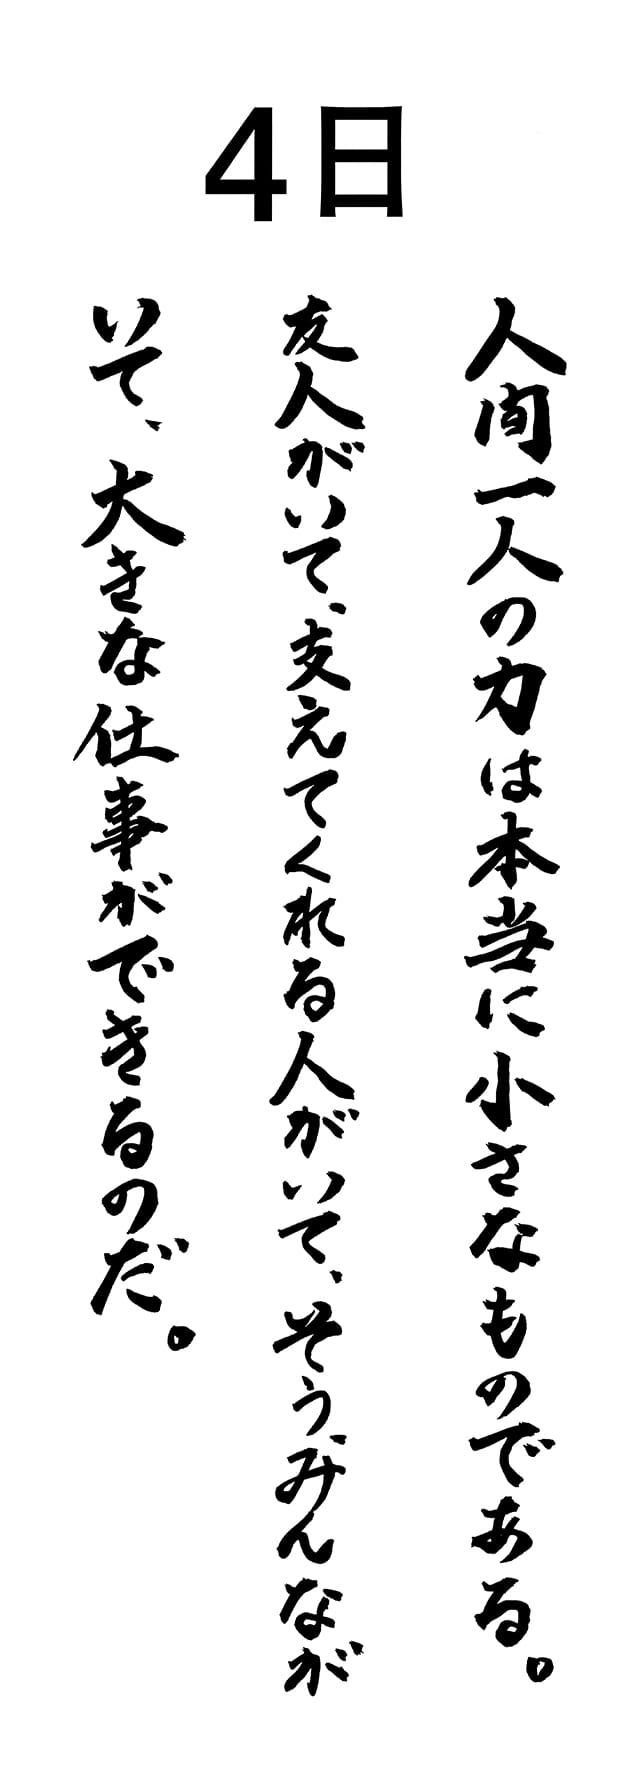 4日
人間一人の力は本当に小さなものである。
友人がいて、支えてくれる人がいて、そう、みんなが
いて、大きな仕事ができるのだ。